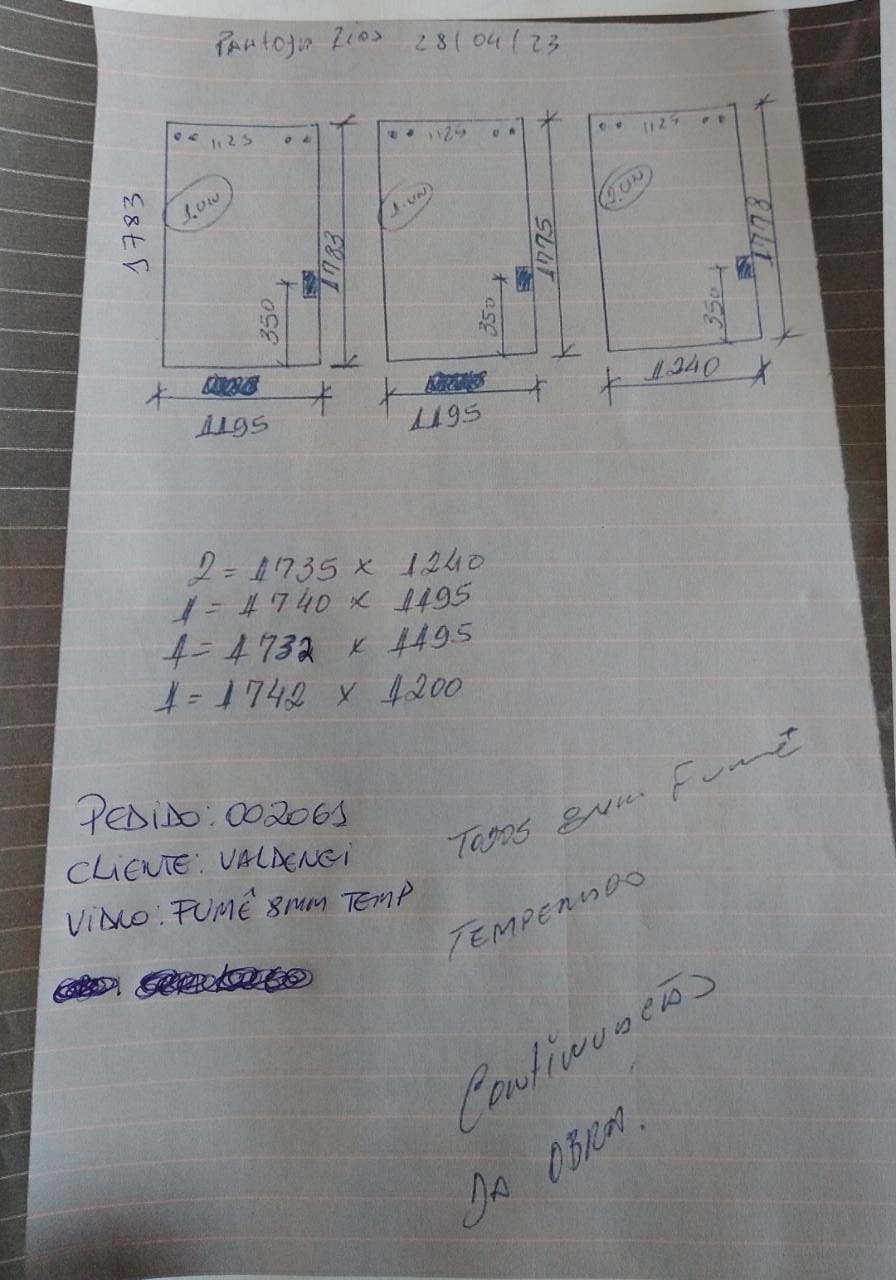 28/04/23
1125
1125
1125
1.UN
1.UN
2.UN
1783
1783
1775
1778
350
350
350
1195
1195
1240
2 = 1735 x 1240
1 = 1740 x 1195
1 = 1732 x 1195
1 = 1742 x 1200
PEDIDO: 002061
CLIENTE: VALDENGI
VIDRO: FUMÊ 8MM TEMP
TODOS 8mm Fumê
TEMPERADO
Continuação
DA OBRA.